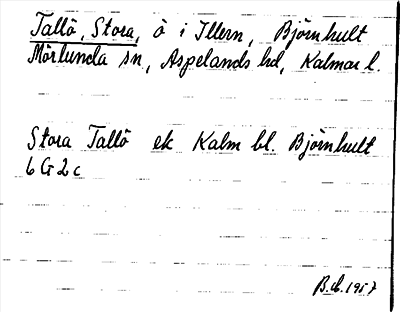 Tallö, Stora, ö i Illern, Björnhult
Mörlunda sn, Aspelands hd, Kalmar l.
Stora Tallö ek Kalm bl. Björnhult
6 G 2 c
B.db. 1957